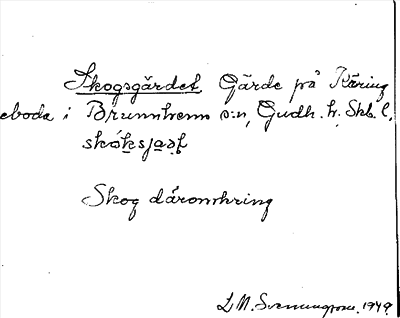 Skogsgärdet Gärde på Käring
eboda i Brunnhems s:n, Gudh. h. Skb. l,
skóksjaṣṭ
Skog däromkring
L M. Svenungsson. 1949.